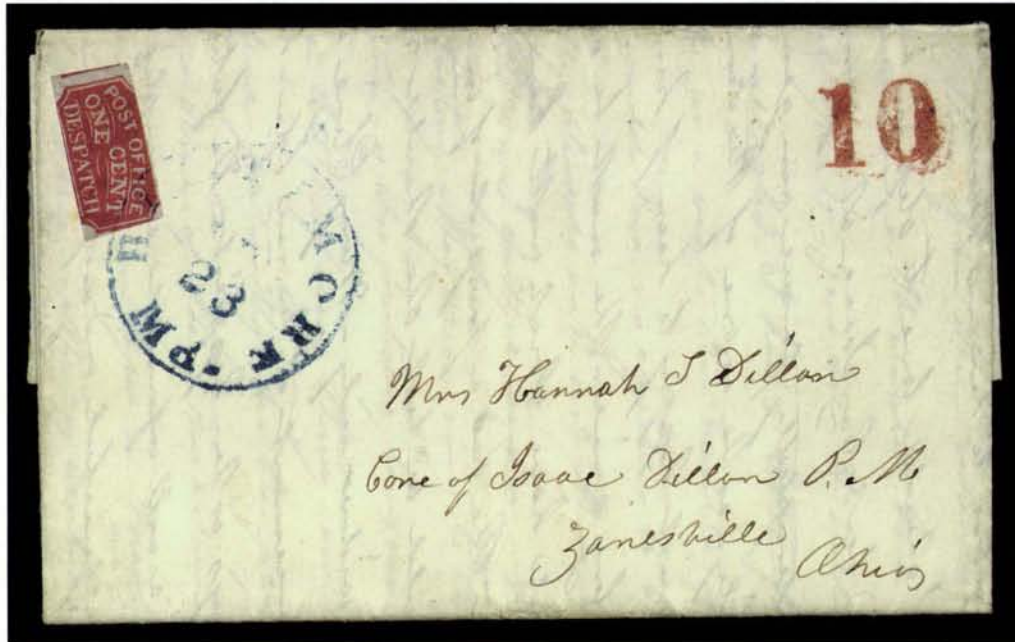 POST OFFICE
ONE CENT
DESPATCH
10
23
Mrs Hannah S Dillon
Care of Isaac Dillon P. M
Zanesville
Ohio